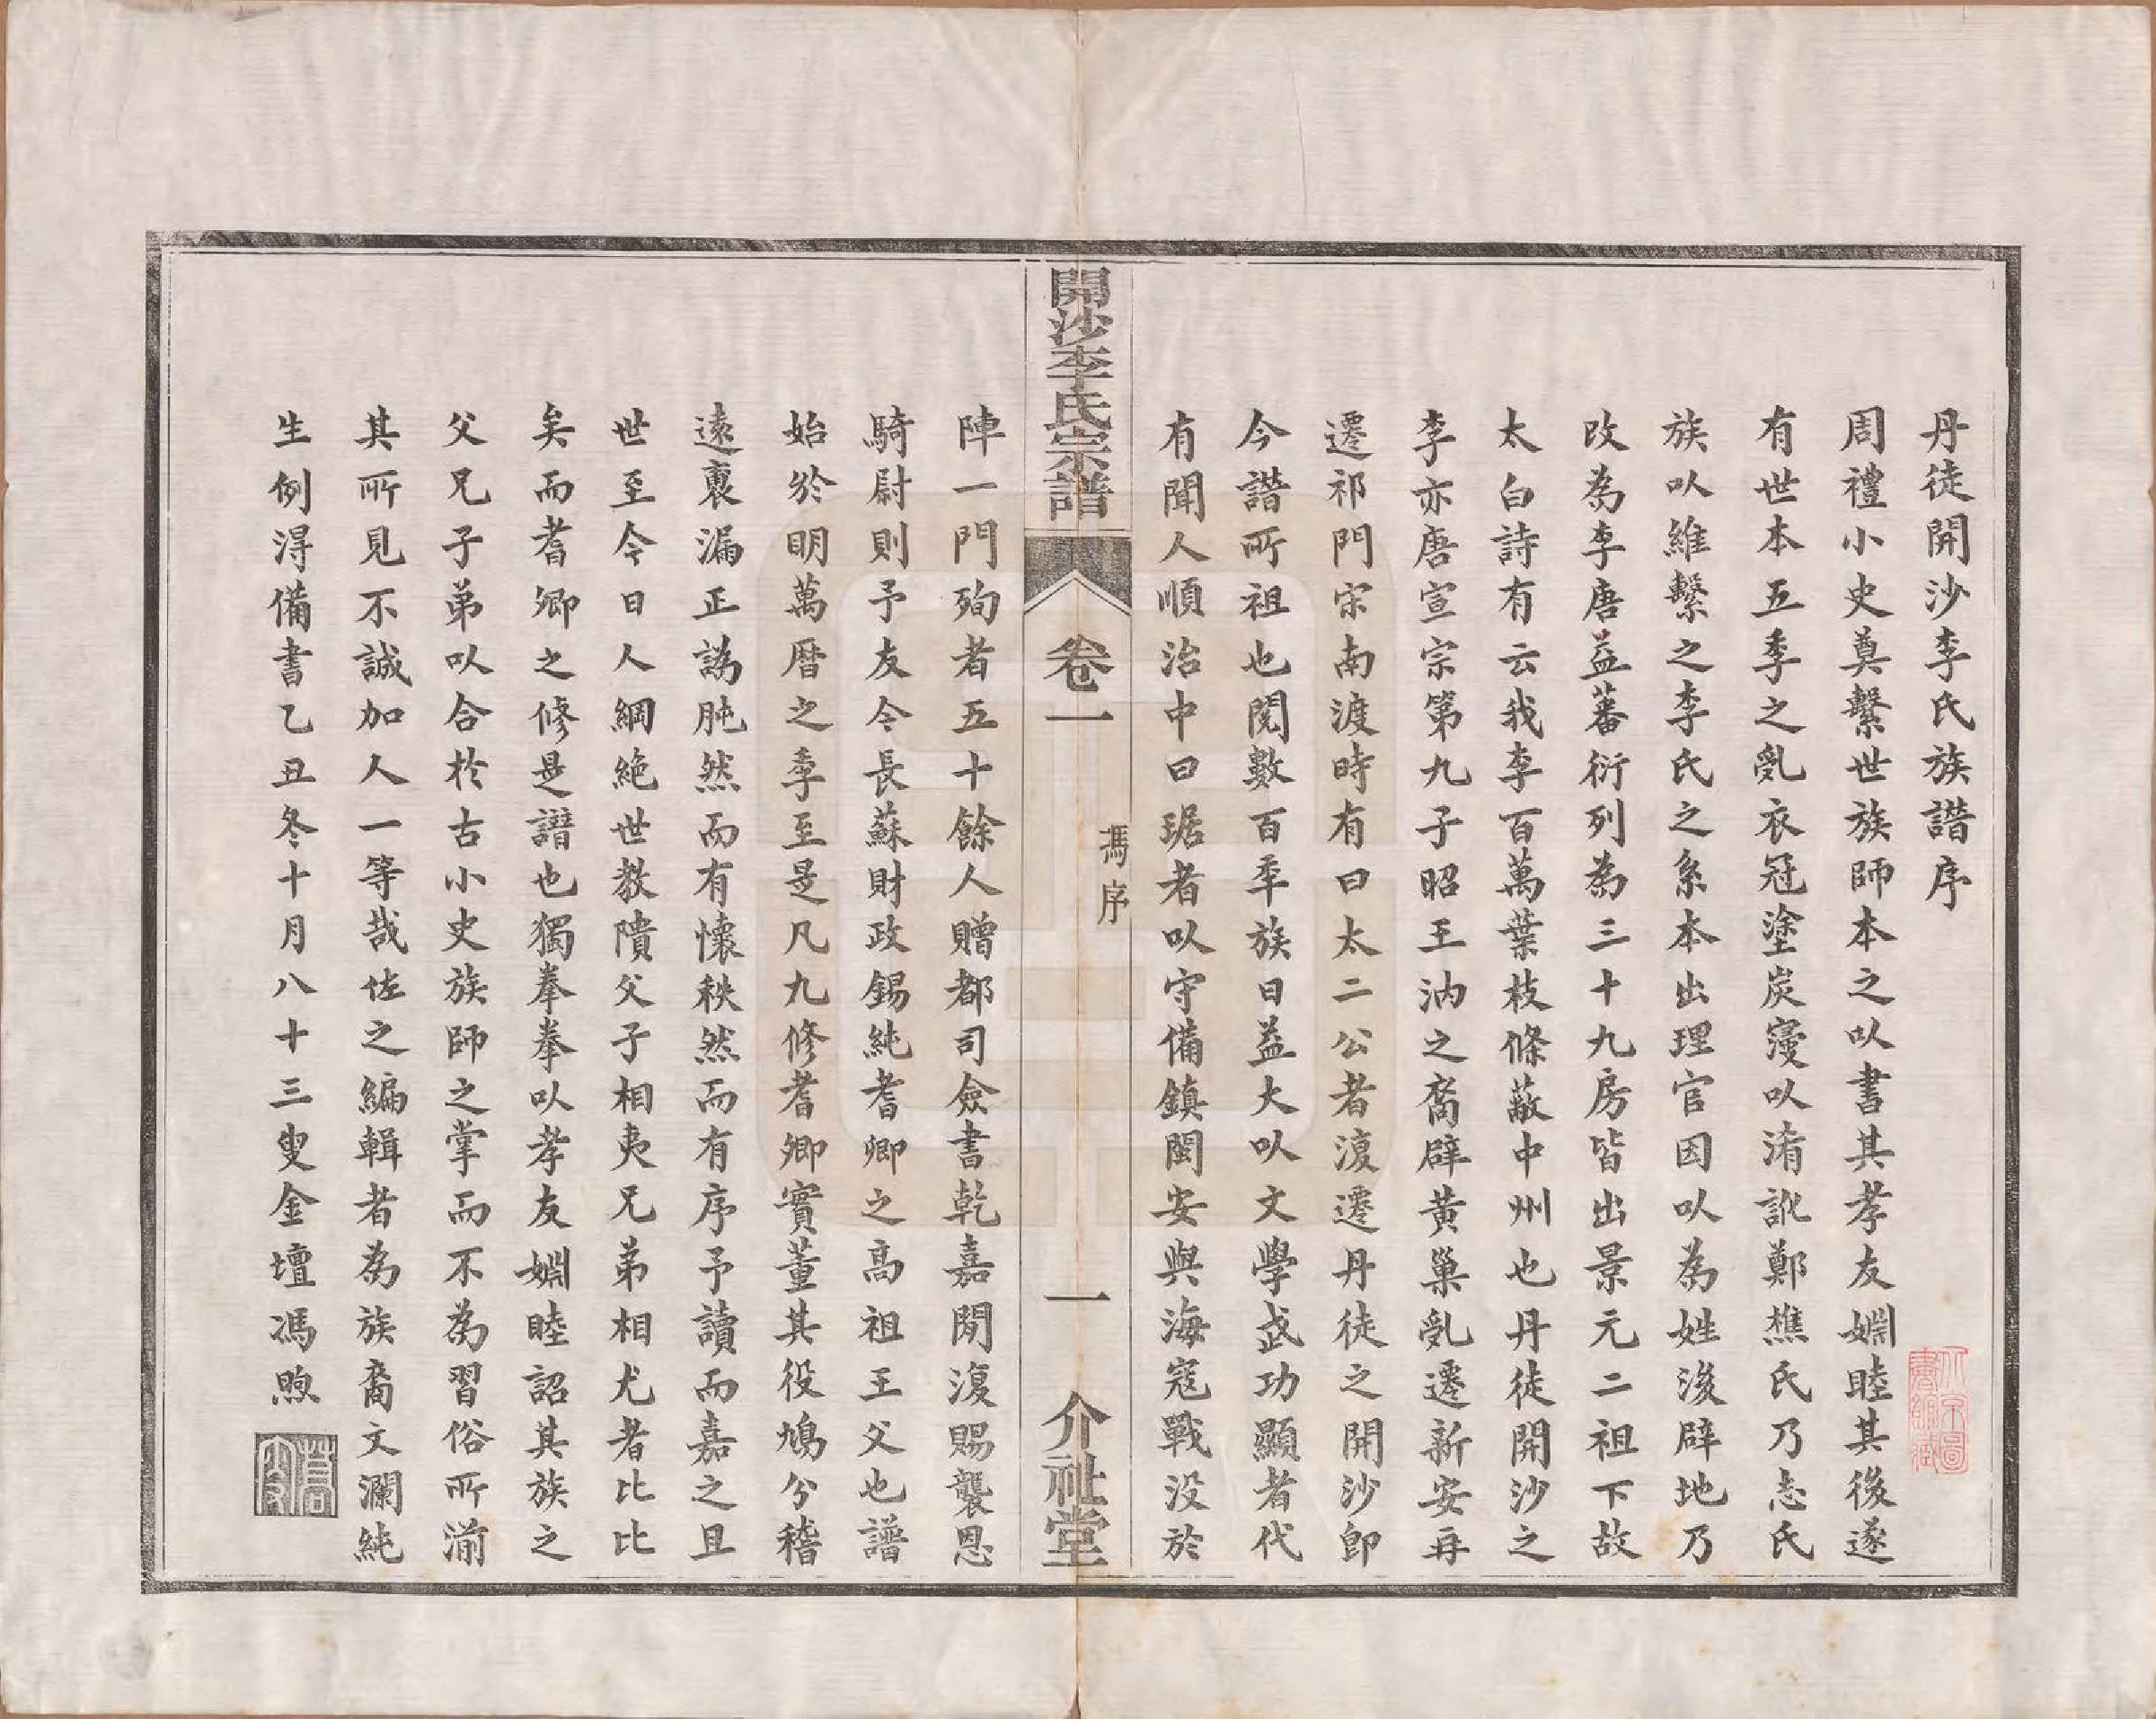 丹徒開沙李氏族譜序
周禮小史奠繫世族師本之以書其孝友婣睦其後遂
有世本五季之亂衣冠塗炭寖以淆訛鄭樵氏乃志氏
族以維繫之李氏之系本出理官因以為姓後辟地乃
改為李唐益蕃衍列為三十九房皆出景元二祖下故
太白詩有云我李百萬葉枝條蔽中州也丹徒開沙之
李亦唐宣宗第九子昭王汭之裔辟黃巢亂遷新安再
遷祁門宗南渡時有曰太二公者復遷丹徒之開沙即
今譜所祖也閱數百年族日益大以文學武功顯者代
有聞人順治中曰琚者以守備鎮閩安與海寇戰沒於
開沙李氏宗譜
卷一
馮序
一
介祉堂
陣一門殉者五十餘人贈都司僉書乾嘉閒復賜襲恩
騎尉則予友今長蘇財政錫純耆卿之高祖王父也譜
始於明萬曆之季至是凡九修耆卿實董其役鳩分稽
遠裒漏正譌肫然而有懷秩然而有序予讀而嘉之且
世至今日人綱絶世教隤父子相夷兄弟相尤者比比
矣而耆卿之修是譜也獨拳拳以孝友婣睦詔其族之
父兄子弟以合於古小史族師之掌而不為習俗所湔
其所見不誠加人一等哉佐之編輯者為族裔文瀾純
生例得備書乙丑冬十月八十三叟金壇馮煦
蒿